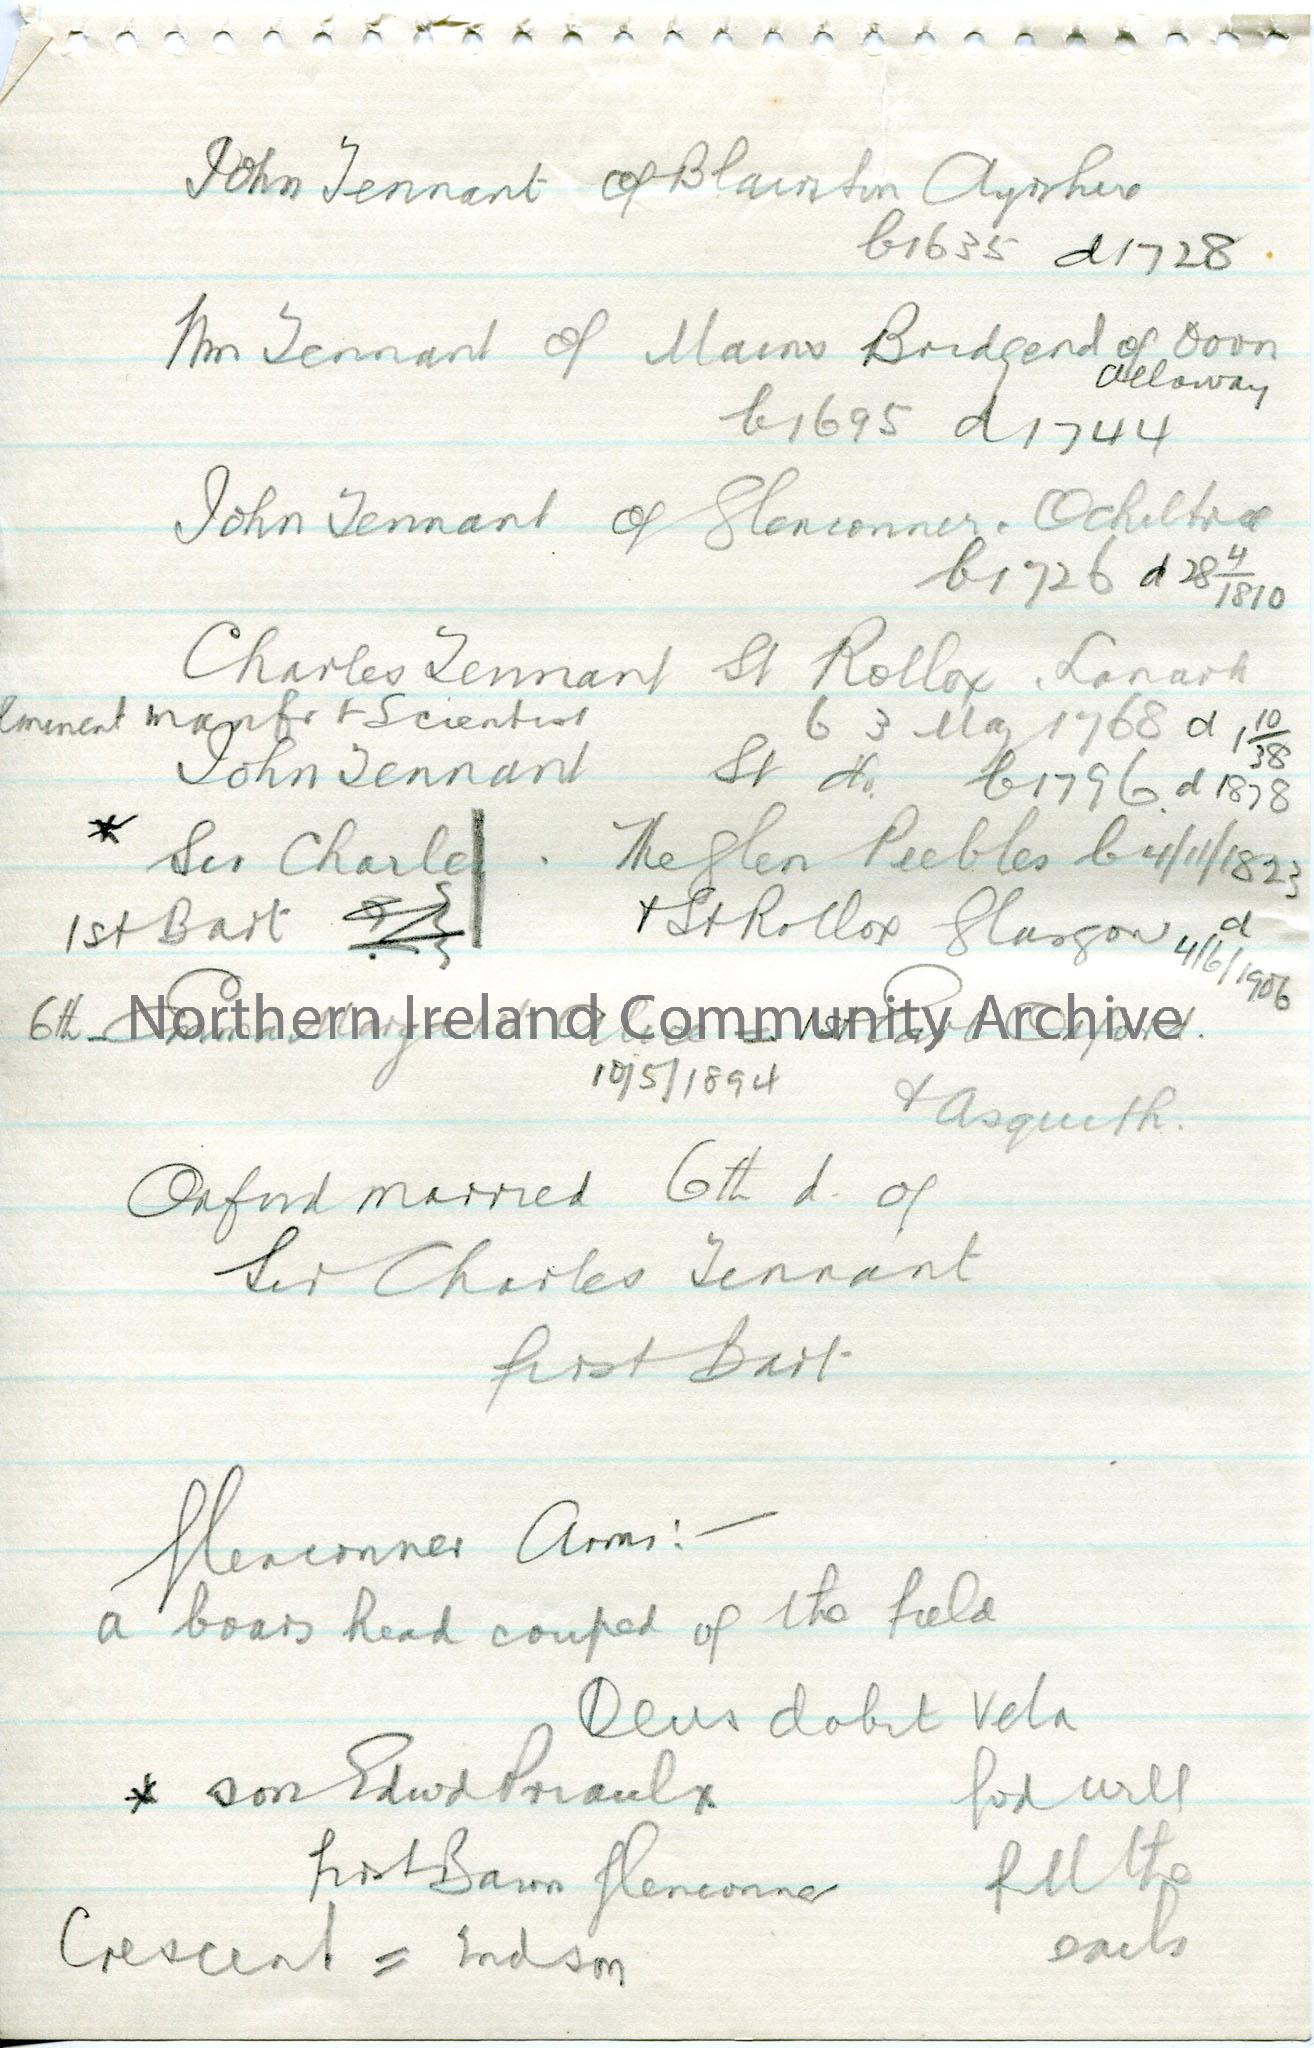 John Tennant of Blairston Ayrshire
b1635 d1728
Wm Tennant of Mains Bridgend of Doon
Alloway
b1695 d1744
John Tennant of Glenconner. Ochiltree
b1726 d 28 4/1810
Charles Tennant St Rollox. Lanark
Eminent manfr + Scientist b 3 May 1768 d 1 10/38
John Tennant St do. b1796. d 1878
* Sir Charles . The Glen Peebles b 4/11/1823
1st Bart + St Rollox Glasgow d
4/6/1906
6th - Emma Margaret Alice = 1st Earl Oxford.
Northern Ireland Community Archive
10/5/1894
+ Asquith.
Oxford married 6th d. of
Sir Charles Tennant
first Bart
Glenconner Arms:—
a boars head couped of the field
Deus dabit vela
* son Edwd Priaulx God will
first Baron Glenconner fill the
Crescent = 2nd son sails